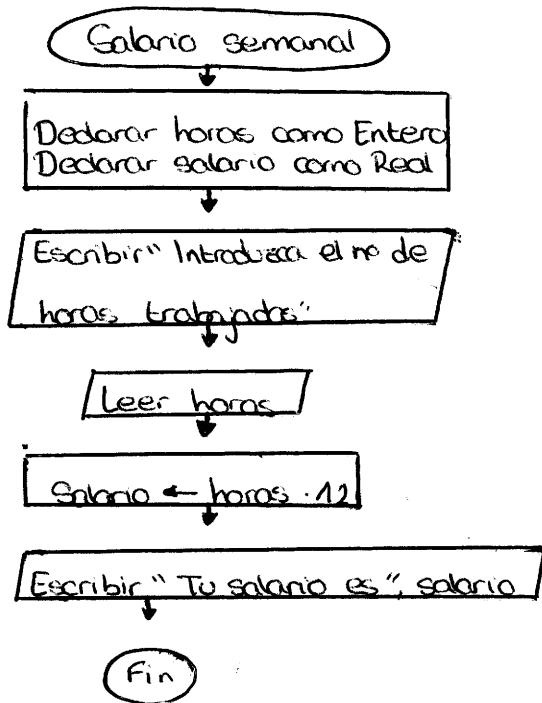 Salario semanal
Declarar horas como Entero
Declarar salario como Real
Escribir " Introduzca el nº de
horas trabajadas"
Leer horas
Salario ← horas · 12
Escribir " Tu salario es", salario
Fin